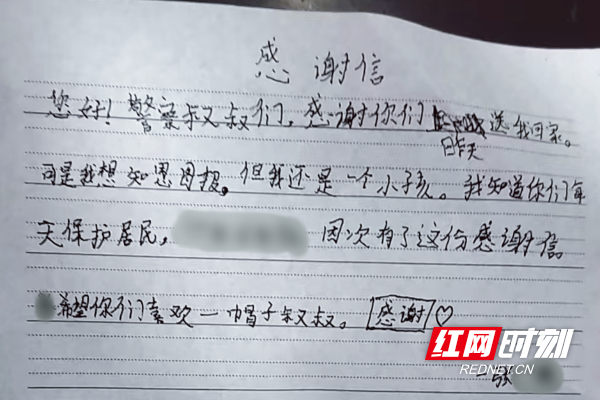 感谢信
您好！警察叔叔们，感谢你们昨天送我回家。
可是我想知恩回报。但我还是一个小孩。我知道你们每
天保护居民， 因次有了这份感谢信
希望你们喜欢一帽子叔叔。感谢♡
红网时刻
REDNET.CN